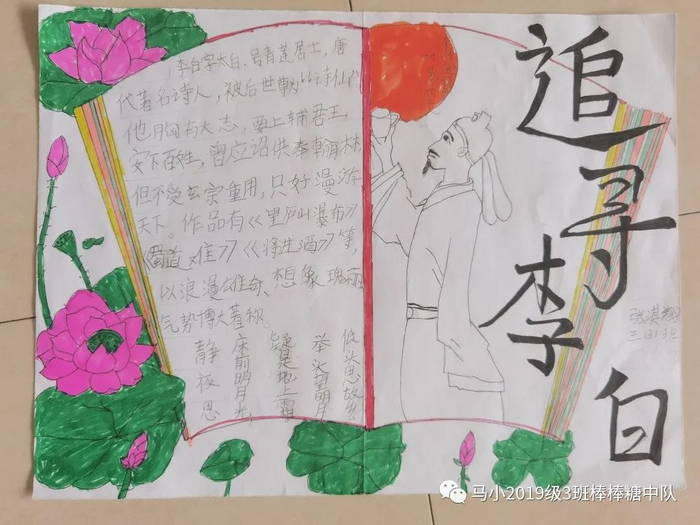 李白字太白,号青莲居士,唐
代著名诗人,被后世尊为"诗仙"
他胸有大志,要上辅君王,
安下百姓,曾应诏供奉翰林
但不受玄宗重用,只好漫游
天下。作品有《望庐山瀑布》
《蜀道难》《将进酒》等,
以浪漫雄奇、想象瑰丽
气势博大著称
静夜思
床前明月光
疑是地上霜
举头望明月
低头思故乡
追寻李白
三(3)班
马小2019级3班棒棒糖中队